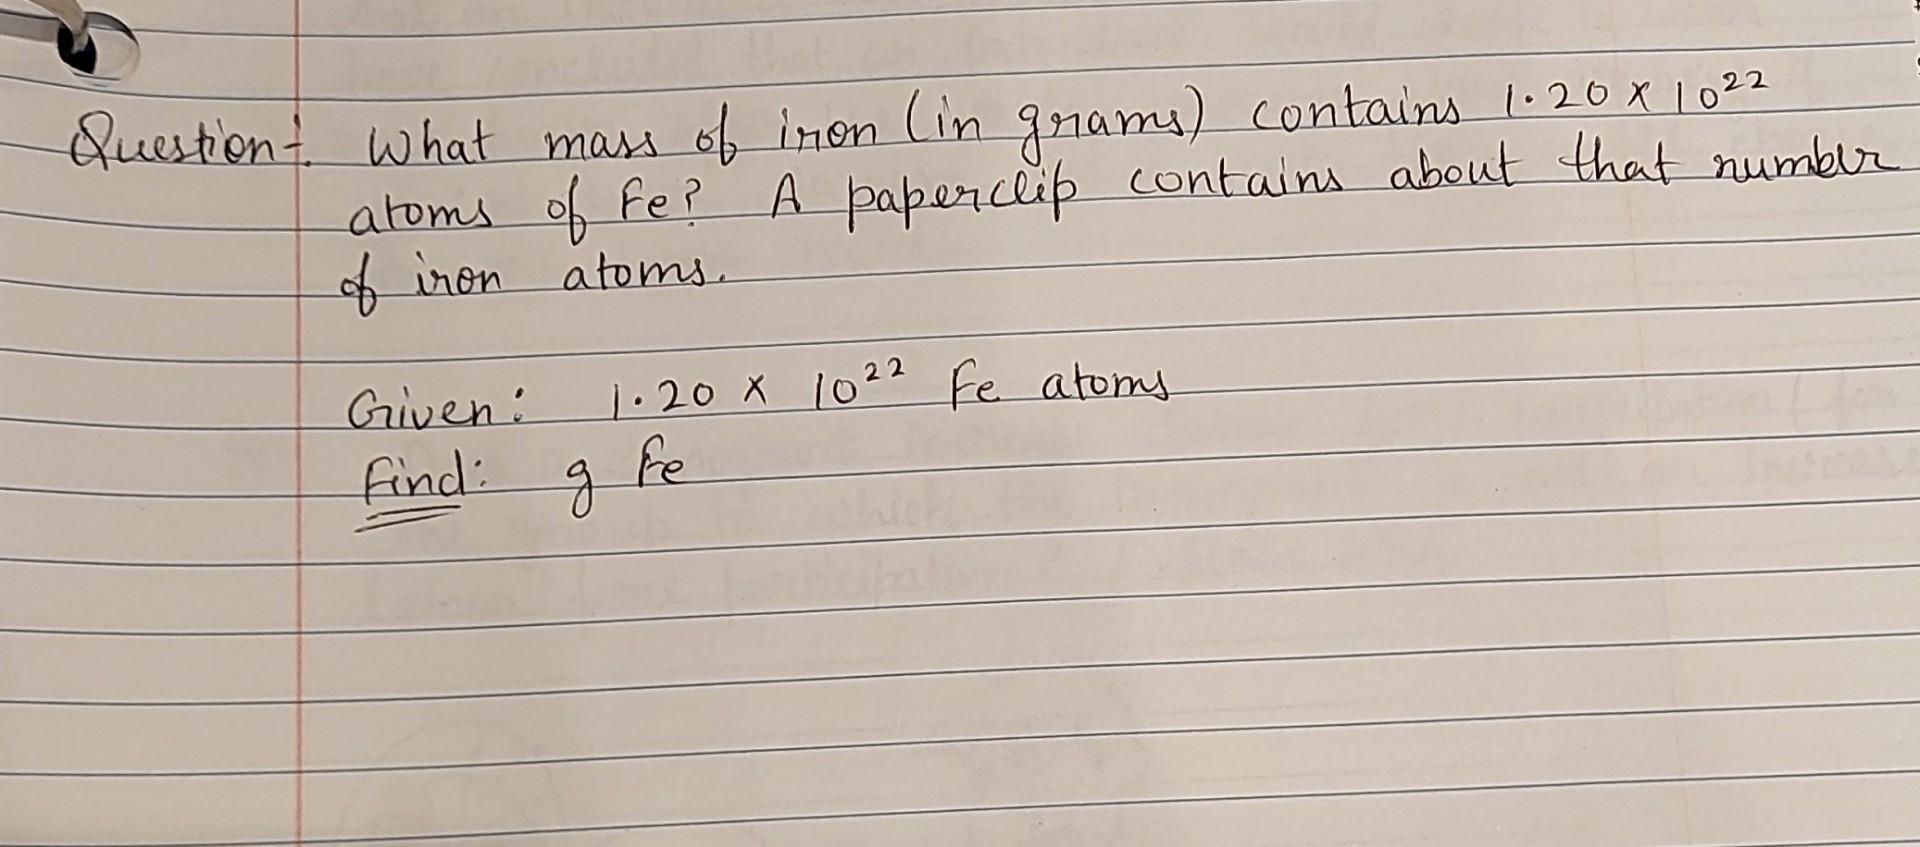 Question:- What mass of iron (in grams) contains 1.20 x 10²²
atoms of Fe? A paperclip contains about that number
of iron atoms.
Given: 1.20 x 10²² Fe atoms
Find: g Fe